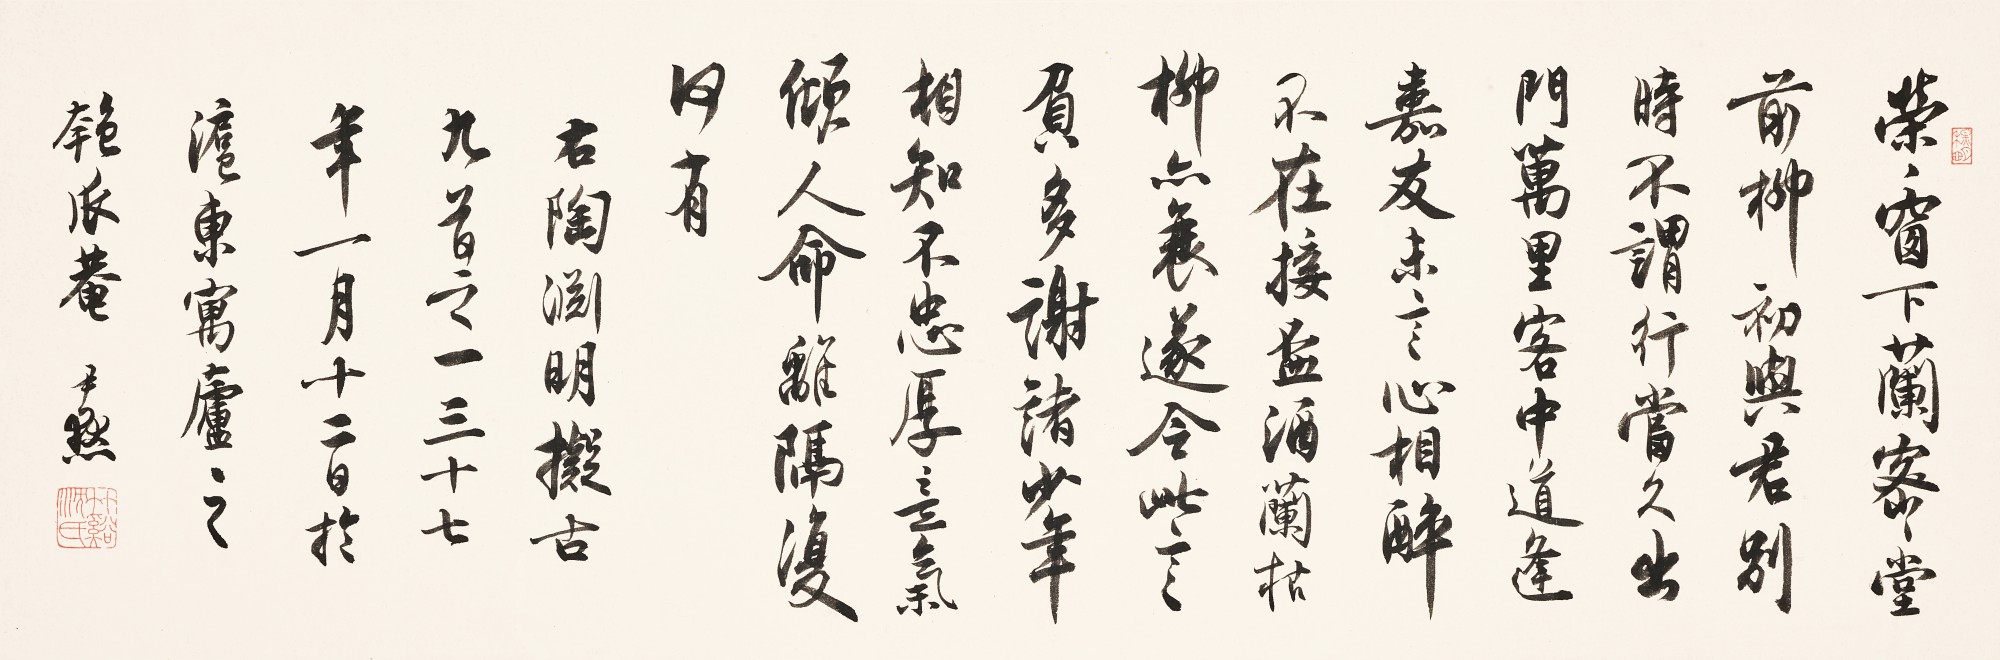 榮〻窗下蘭密〻堂
前柳初與君別
時不謂行當久出
門萬里客中道逢
嘉友未言心相醉
不在接盃酒蘭枯
柳亦衰遂令此言
負多謝諸少年
相知不忠厚意氣
傾人命離隔復
何有
右陶淵明擬古
九首之一三十七
年一月十二日於
滬東寓廬之
匏瓜菴 尹默
竹谿沈氏